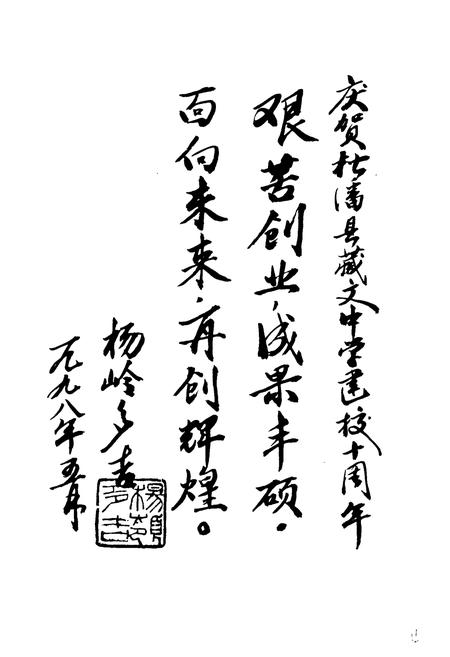 庆贺松潘县藏文中学建校十周年
艰苦创业,成果丰硕。
面向未来,再创辉煌。
杨岭多吉
一九九八年五月
杨岭多吉